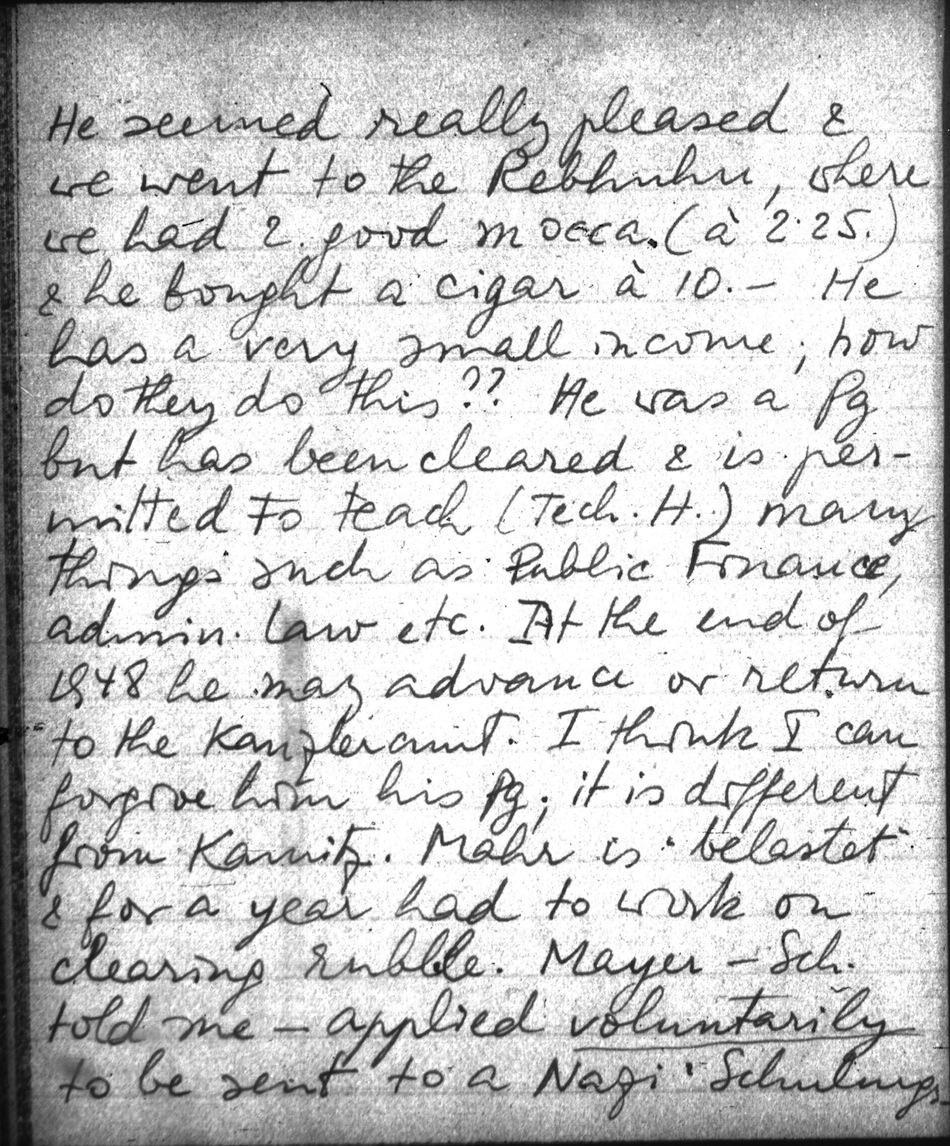 He seemed really pleased &
we went to the Rebhuhn, where
we had 2 good mocca. (à 2.25.)
& he bought a cigar à 10.– He
has a very small income; how
do they do this?? He was a Pg
but has been cleared & is per-
mitted to teach (Tech. H.) many
things such as Public Finance,
admin. law etc. At the end of
1948 he may advance or return
to the Kanzleramt. I think I can
forgive him his Pg; it is different
from Kamitz. Mahr is "belastet"
& for a year had to work on
clearing rubble. Mayer – Sch.
told me – applied voluntarily
to be sent to a Nazi "Schulungs-